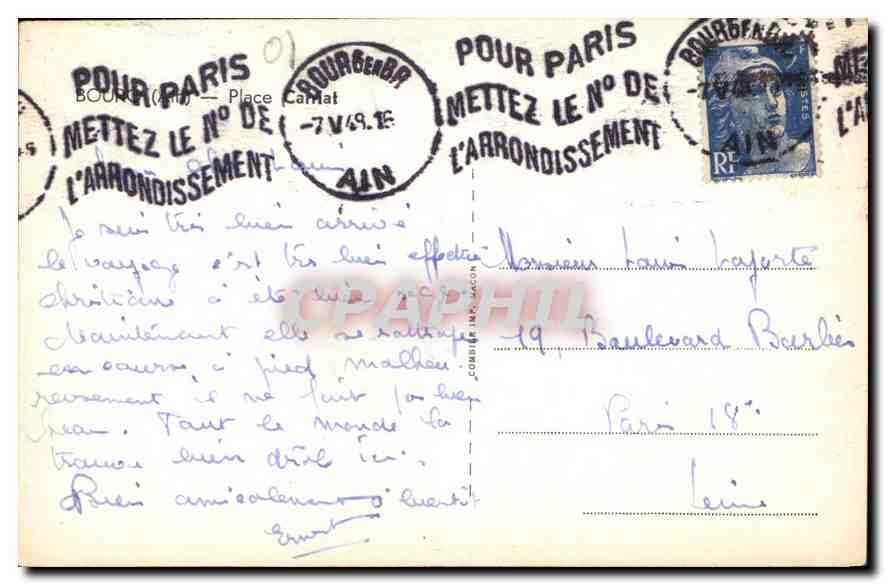 POUR PARIS
METTEZ LE N° DE
L'ARRONDISSEMENT
BOURG (Ain) — Place Carriat
BOURG EN BR
-7 V 49. 15
AIN
POUR PARIS
METTEZ LE N° DE
L'ARRONDISSEMENT
BOURG EN
-7 V 49
AIN
RF
POSTES
01
Je suis très bien arrivé
le voyage s'est très bien effectué
Christiane a été bien sage.
Maintenant elle se rattrape
en course à pied malheu-
reusement il ne fait pas bien
beau. Tout le monde la
trouve bien drôle ici.
Bien amicalement à bientôt
Ernest
COMBIER IMP. MACON
Monsieur Louis Laforte
19, Boulevard Barbès
Paris 18e
Seine
CPAPHIL